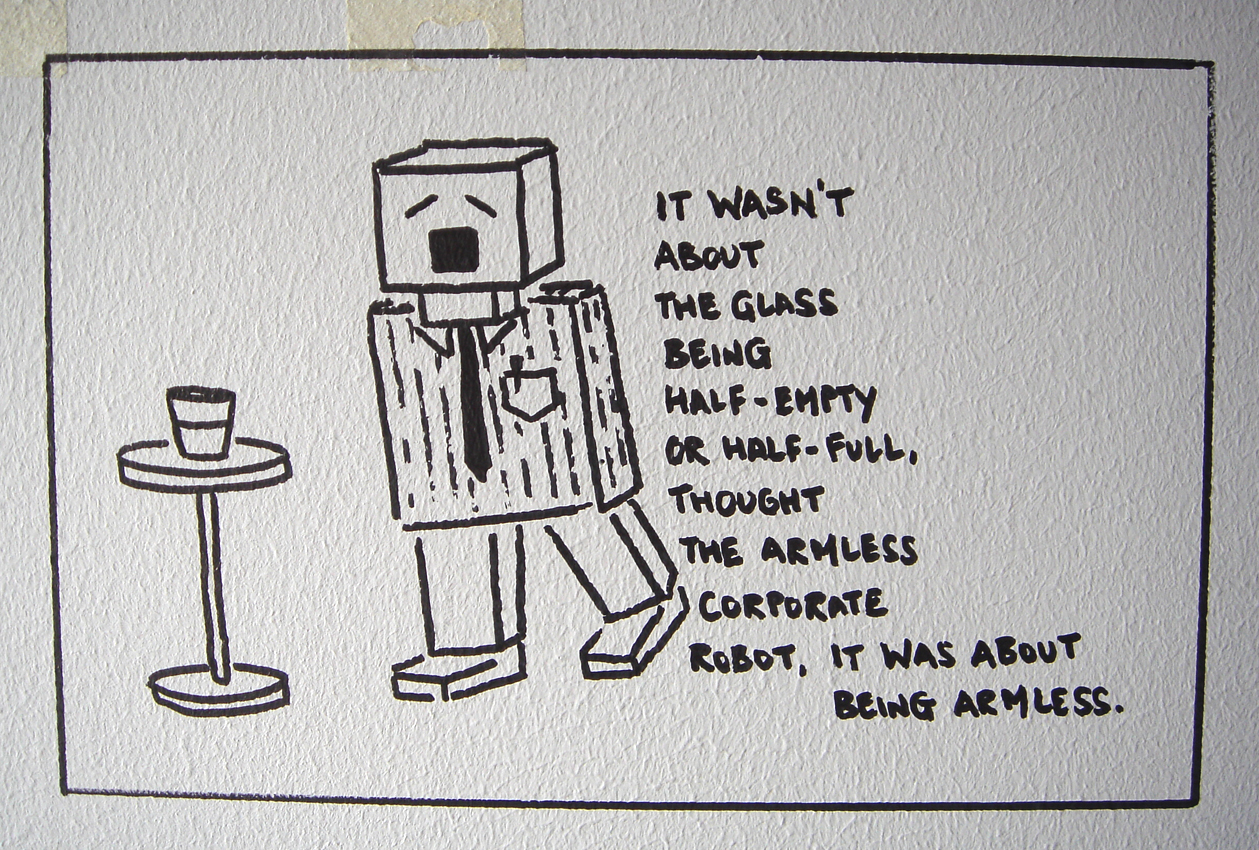 IT WASN'T
ABOUT
THE GLASS
BEING
HALF-EMPTY
OR HALF-FULL,
THOUGHT
THE ARMLESS
CORPORATE
ROBOT, IT WAS ABOUT
BEING ARMLESS.